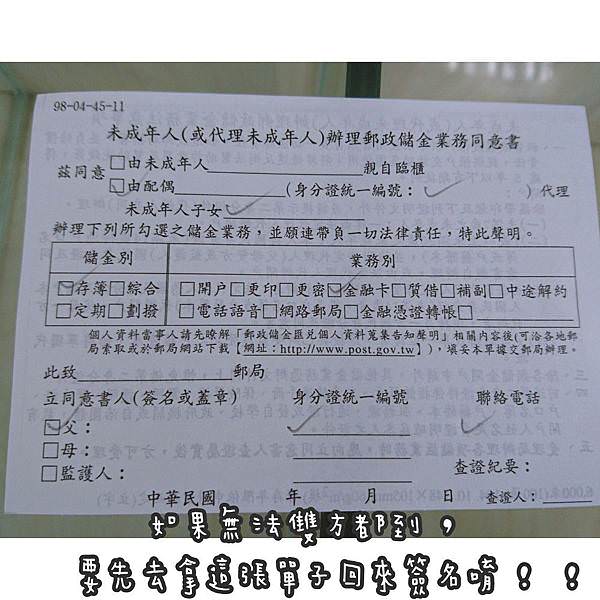 98-04-45-11
未成年人(或代理未成年人)辦理郵政儲金業務同意書
茲同意 □由未成年人 親自臨櫃
□由配偶 (身分證統一編號: ) 代理
未成年人子女
辦理下列所勾選之儲金業務,並願連帶負一切法律責任,特此聲明。
儲金別 業務別
□存簿□綜合 □開戶□更印□更密□金融卡□質借□補副□中途解約
□定期□劃撥 □電話語音□網路郵局□金融憑證轉帳□
個人資料當事人請先瞭解「郵政儲金匯兌個人資料蒐集告知聲明」相關內容後(可洽各地郵
局索取或於郵局網站下載【網址:http://www.post.gov.tw】),填妥本單據交郵局辦理。
此致 郵局
立同意書人(簽名或蓋章) 身分證統一編號 聯絡電話
□父:
□母:
□監護人: 查證紀要:
中華民國 年 月 日 查證人:
如果無法雙方都到,
要先去拿這張單子回來簽名唷!!